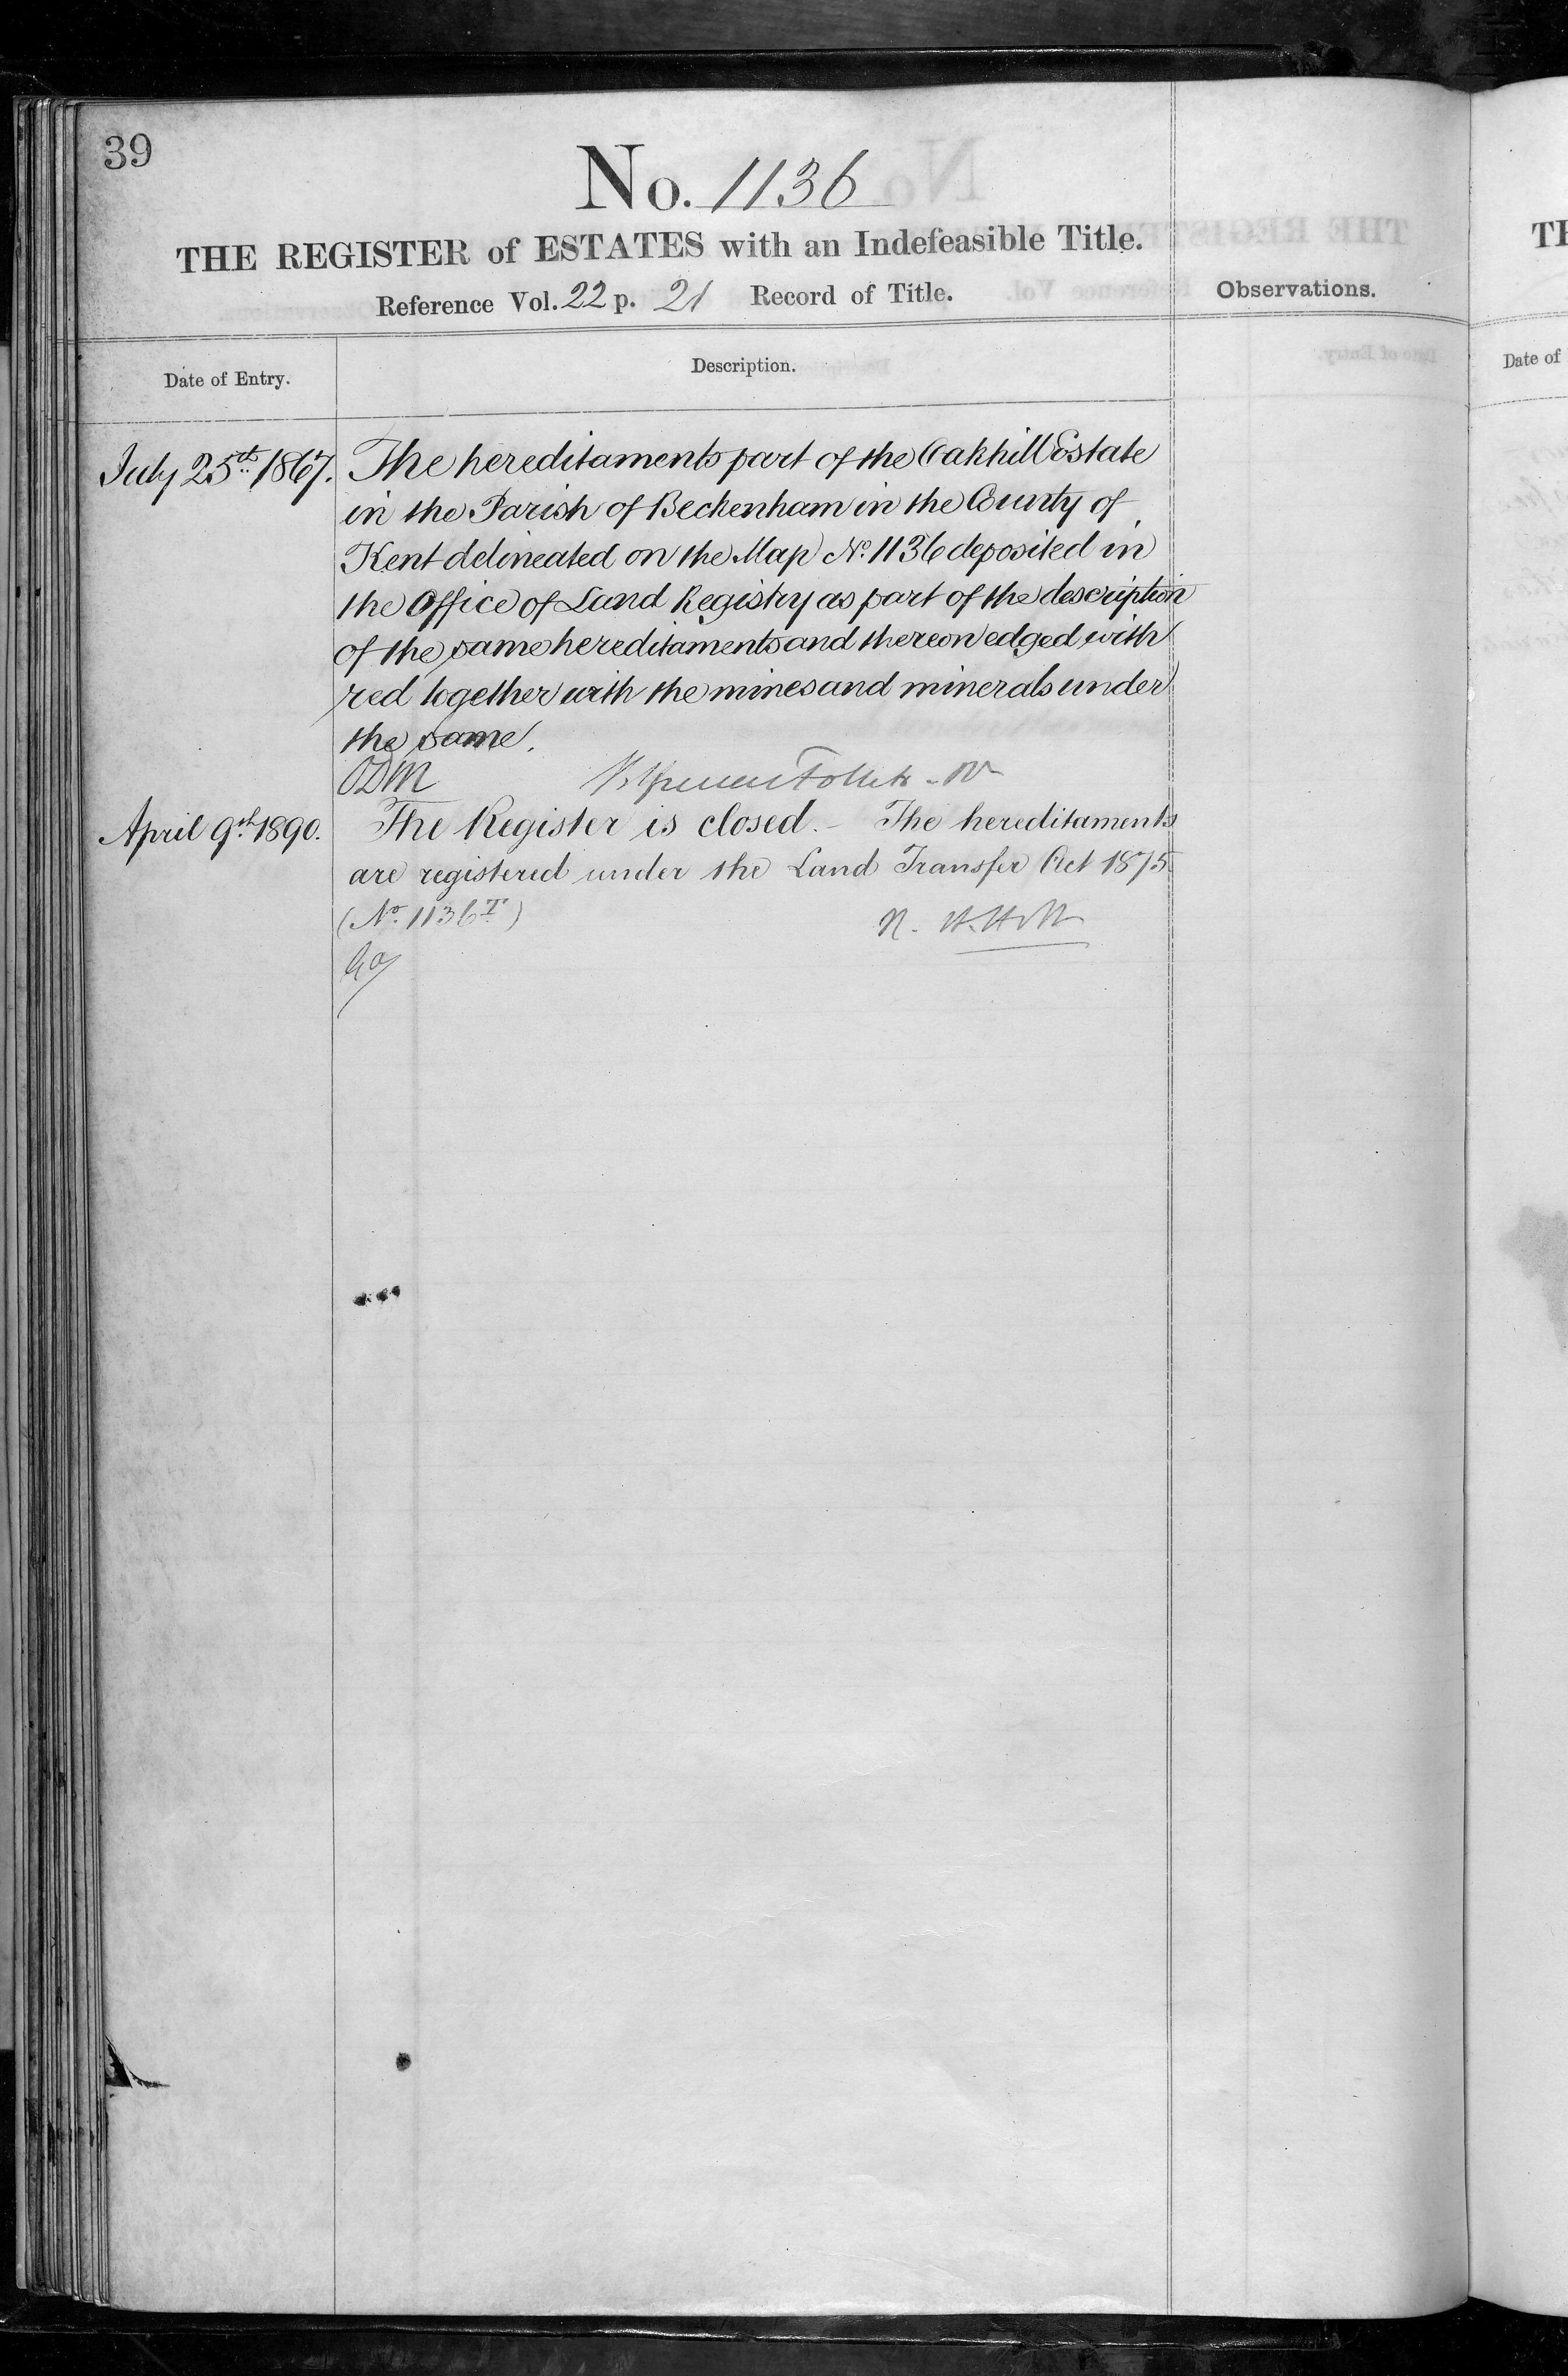 39
No. 1136
THE REGISTER of ESTATES with an Indefeasible Title.
Reference Vol. 22 p. 21 Record of Title.
Observations.
Date of Entry.
Description.
July 25th 1867.
The hereditaments part of the Oakhill Estate
in the Parish of Beckenham in the County of
Kent delineated on the Map No. 1136 deposited in
the Office of Land Registry as part of the description
of the same hereditaments and thereon edged with
red together with the mines and minerals under
the same.
ODM
Follett
April 9th 1890.
The Register is closed. - The hereditaments
are registered under the Land Transfer Act 1875
(No. 1136 T)
R. H. Holt
TH
Date of